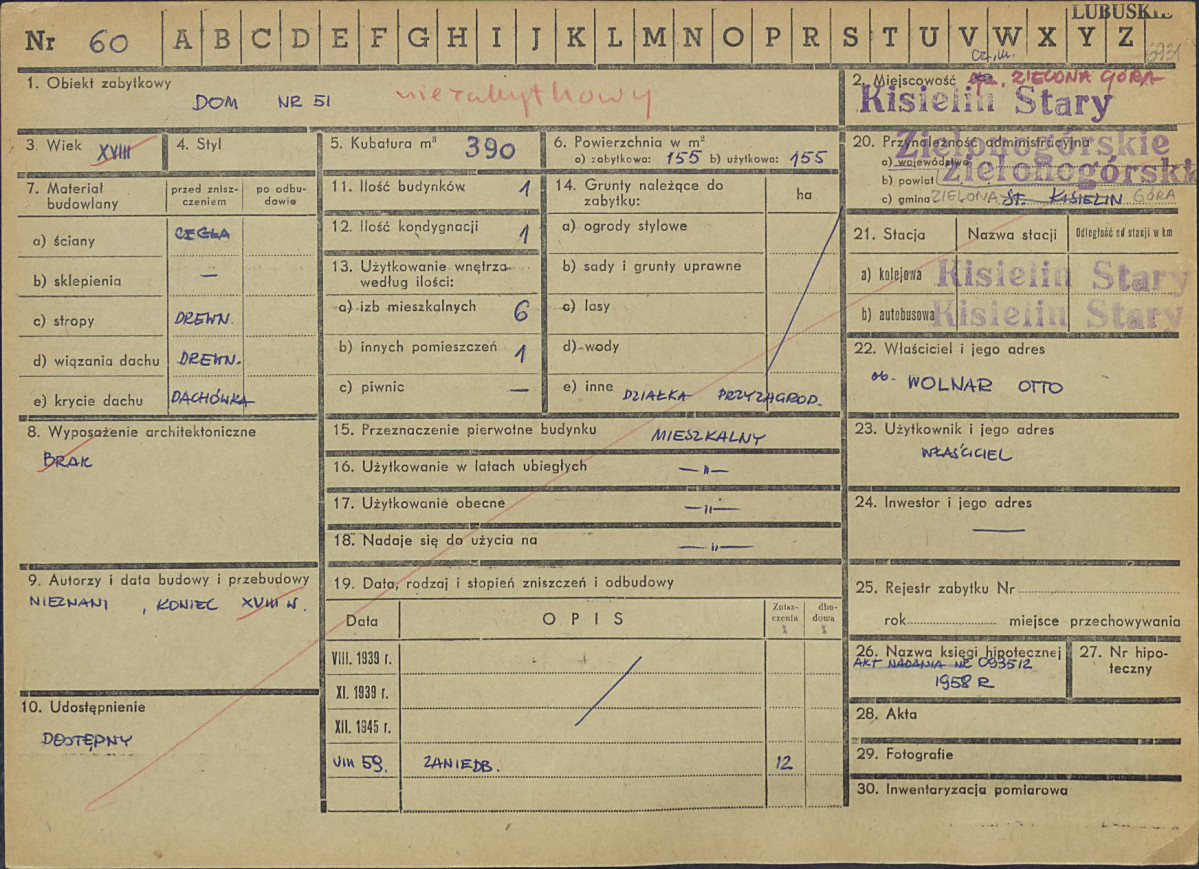 LUBUSKIE
Nr 60 A B C D E F G H I J K L M N O P R S T U V W X Y Z
1. Obiekt zabytkowy
DOM NR 51 niezabytkowy
2. Miejscowość ZIELONA GÓRA
Kisielin Stary
3. Wiek XVIII
4. Styl
5. Kubatura m³ 390
6. Powierzchnia w m²
a) zabytkowa: 155 b) użytkowa: 155
20. Przynależność administracyjna
a) województwo Zielonogórskie
b) powiat zielonogórski
c) gmina ZIELONA ST. KISIELIN GÓRA
7. Materiał budowlany
przed zniszczeniem
po odbudowie
a) ściany CEGŁA
b) sklepienia —
c) stropy DREWN.
d) wiązania dachu DREWN.
e) krycie dachu DACHÓWKA
11. Ilość budynków 1
12. Ilość kondygnacji 1
13. Użytkowanie wnętrza według ilości:
a) izb mieszkalnych 6
b) innych pomieszczeń 1
c) piwnic —
14. Grunty należące do zabytku:
ha
a) ogrody stylowe
b) sady i grunty uprawne
c) lasy
d) wody
e) inne DZIAŁKA PRZYZAGROD.
21. Stacja Nazwa stacji Odległość od stacji w km
a) kolejowa Kisielin Stary
b) autobusowa Kisielin Stary
22. Właściciel i jego adres
ob. WOLNAR OTTO
8. Wyposażenie architektoniczne
BRAK
15. Przeznaczenie pierwotne budynku MIESZKALNY
16. Użytkowanie w latach ubiegłych —"—
17. Użytkowanie obecne —"—
18. Nadaje się do użycia na —"—
23. Użytkownik i jego adres
WŁAŚCICIEL
24. Inwestor i jego adres
—
9. Autorzy i data budowy i przebudowy
NIEZNANI, KONIEC XVIII W.
19. Data, rodzaj i stopień zniszczeń i odbudowy
Data OPIS Zniszczenia % dbudowa %
VIII. 1939 r.
XI. 1939 r.
XII. 1945 r.
VIII 59. ZANIEDB. 12
25. Rejestr zabytku Nr
rok miejsce przechowywania
26. Nazwa księgi hipotecznej
AKT NADANIA NR 093512
1958 R
27. Nr hipoteczny
10. Udostępnienie
DOSTĘPNY
28. Akta
29. Fotografie
30. Inwentaryzacja pomiarowa